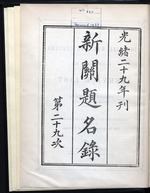 光緒二十九年刊
新關題名錄
第二十九次